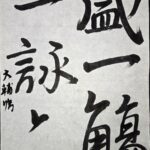 盛一觴
一詠
大輔臨